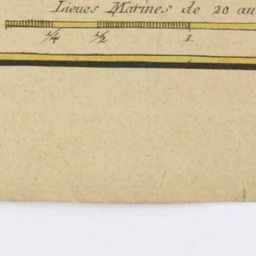 Lieues Marines de 20 au
1/4 1/2 1